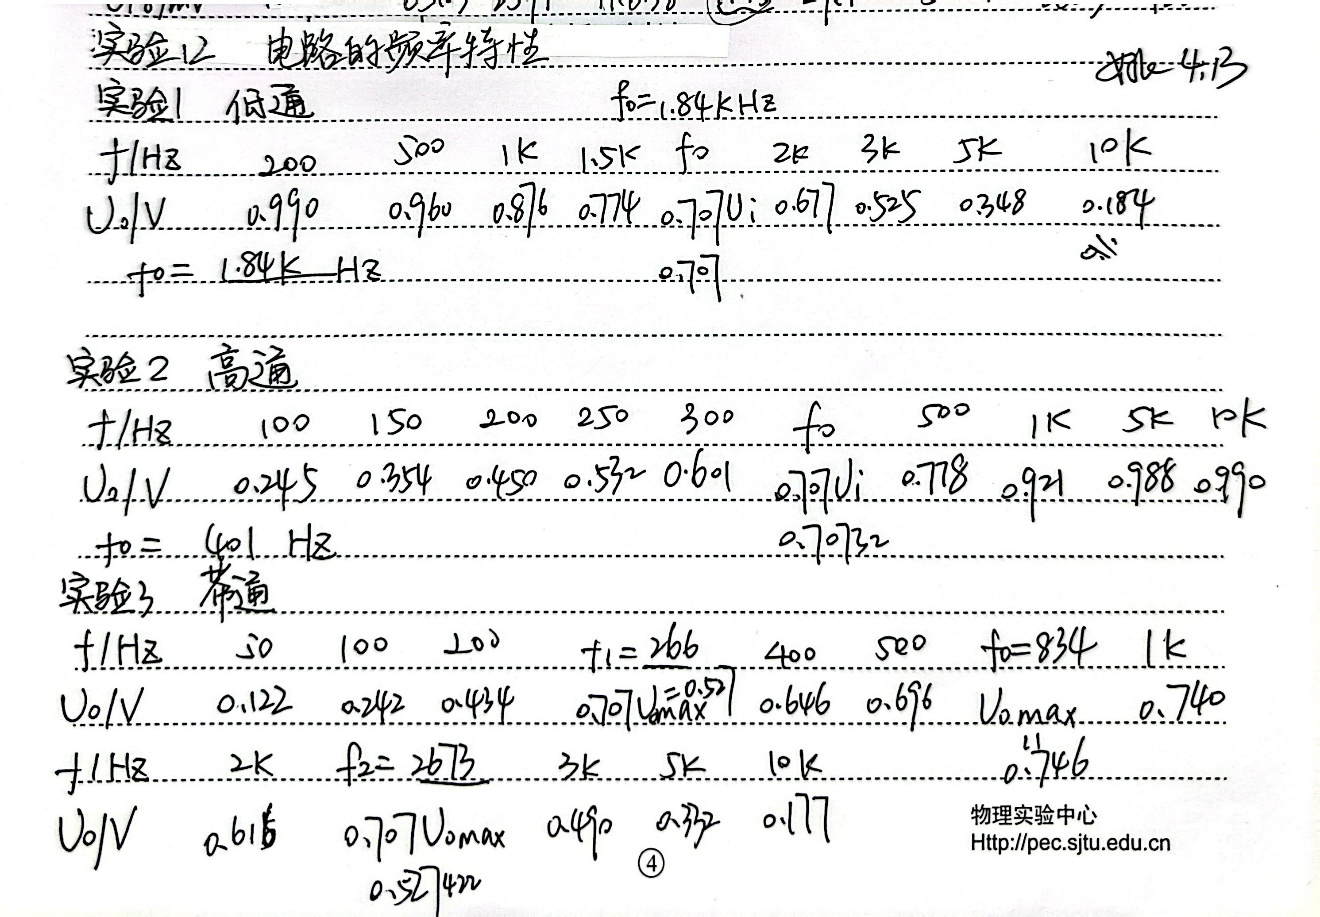 实验12 电路的频率特性
4.13
实验1 低通 f0=1.84KHZ
f/HZ 200 500 1K 1.5K f0 2K 3K 5K 10K
U0/V 0.990 0.960 0.876 0.774 0.707Ui 0.677 0.525 0.348 0.184
f0= 1.84K HZ 0.707
实验2 高通
f/HZ 100 150 200 250 300 f0 500 1K 5K 10K
U0/V 0.245 0.354 0.450 0.532 0.601 0.707Ui 0.778 0.921 0.988 0.990
f0= 401 HZ 0.70732
实验3 带通
f/HZ 50 100 200 f1=266 400 500 f0=834 1K
U0/V 0.122 0.242 0.434 0.707U0max=0.527 0.646 0.696 U0max 0.740
f/HZ 2K f2=2673 3K 5K 10K 0.746
U0/V 0.616 0.707U0max 0.490 0.332 0.177
0.527422
物理实验中心
Http://pec.sjtu.edu.cn
④